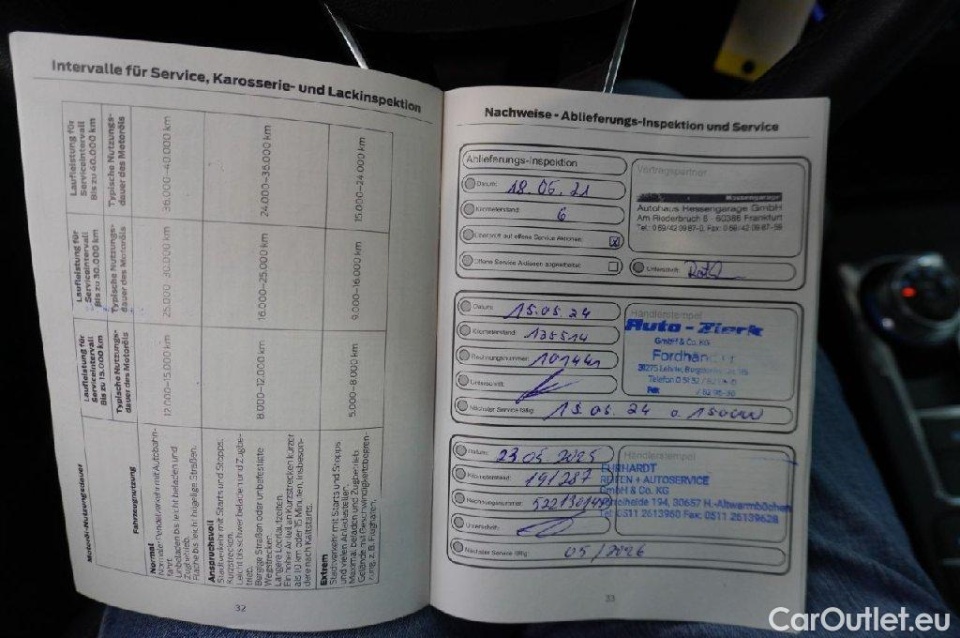 Intervalle für Service, Karosserie- und Lackinspektion
Motoröl-Nutzungsdauer
Laufleistung für
Serviceintervall
Bis zu 15.000 km
Laufleistung für
Serviceintervall
Bis zu 30.000 km
Laufleistung für
Serviceintervall
Bis zu 40.000 km
Fahrzeugnutzung
Typische Nutzungs-
dauer des Motoröls
Typische Nutzungs-
dauer des Motoröls
Typische Nutzungs-
dauer des Motoröls
Normal
Normaler Pendelverkehr mit Autobahn-
fahrt.
Unbeladen bis leicht beladen und
Zugbetrieb.
Flache bis leicht hügelige Straßen.
12.000–15.000 km
25.000–30.000 km
36.000–40.000 km
Anspruchsvoll
Stadtverkehr mit Starts und Stopps.
Kurzstrecken.
Leicht bis schwer beladen und Zugbe-
trieb.
Bergige Straßen oder unbefestigte
Wegstrecken.
Längere Leerlaufzeiten.
Ein hoher Anteil an Kurzstrecken kürzer
als 10 km oder 15 Minuten, insbeson-
dere nach Kaltstarts.
8.000–12.000 km
16.000–25.000 km
24.000–36.000 km
Extrem
Stadtverkehr mit Starts und Stopps
und vielen Anladestellen.
Maximal beladen und Zugbetrieb
5.000–8.000 km
9.000–16.000 km
15.000–24.000 km
32
Nachweise - Ablieferungs-Inspektion und Service
Ablieferungs-Inspektion
Datum: 18.05.21
Kilometerstand: 6
Überprüft auf offene Service Aktionen: x
Offene Service Aktionen
Vertragspartner
Hessengarage
Autohaus Hessengarage GmbH
Am Riederbruch 6 60386 Frankfurt
Unterschrift:
Datum: 15.05.24
Kilometerstand: 135514
Rechnungsnummer: 101441
Unterschrift:
Nächster Service fällig: 15.05.24 o. 15000
Händlerstempel
Auto-Zierk
GmbH & Co. KG
Datum: 23.05.2025
Kilometerstand: 191287
Rechnungsnummer:
Unterschrift:
Nächster Service fällig: 05/2026
Händlerstempel
EHRHARDT
REIFEN + AUTOSERVICE
GmbH & Co. KG
194, 30657 H.-Altwarmbüchen
Tel: 0511 2613960 Fax: 0511 26139628
33
CarOutlet.eu